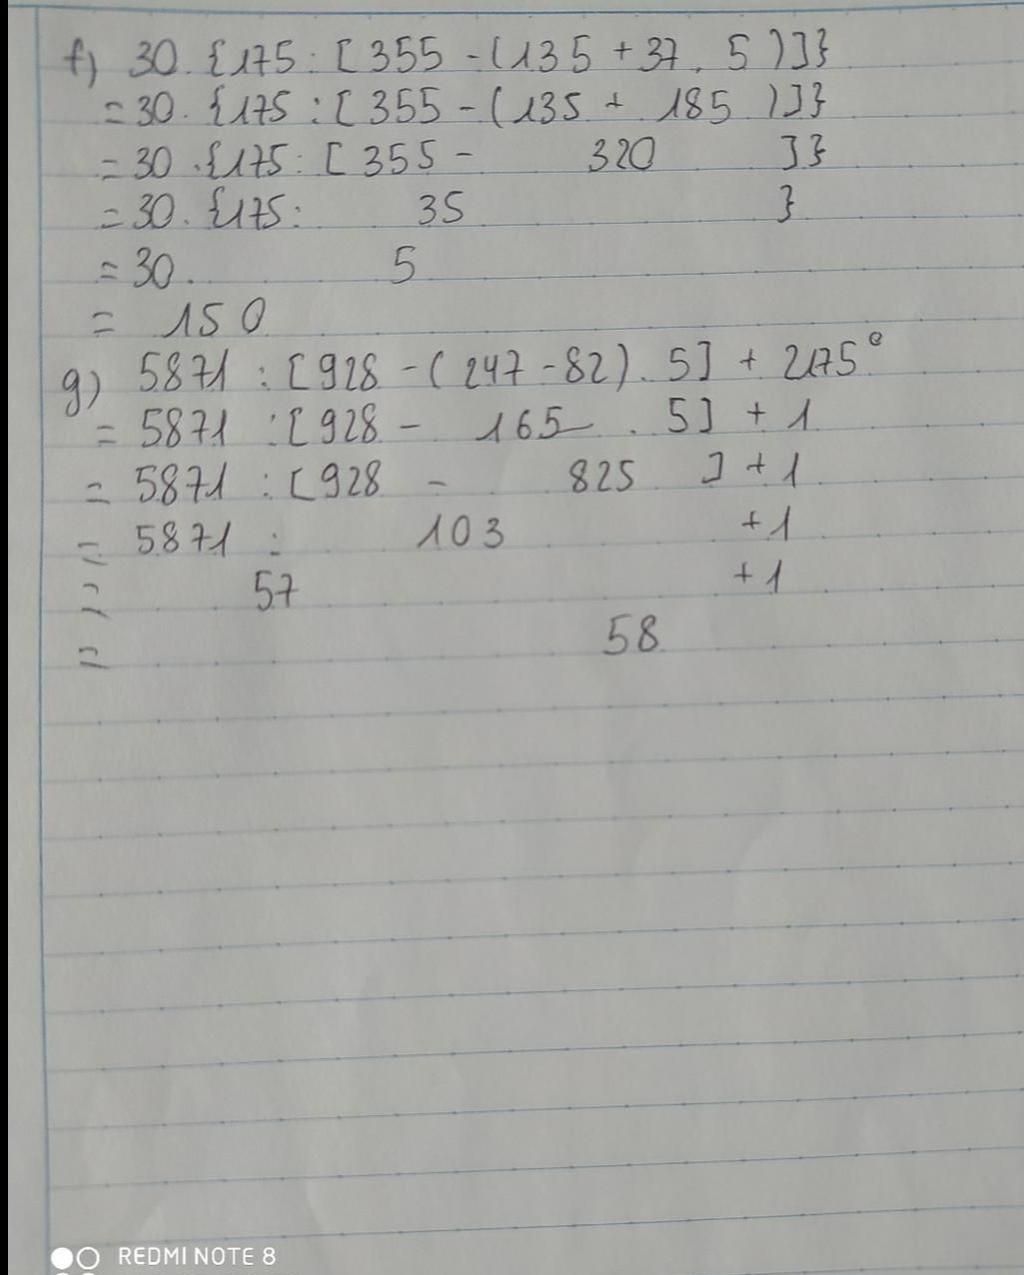 f) 30. {175 : [ 355 - (135 + 37. 5 )]}
= 30. {175 : [ 355 - (135 + 185 )]}
= 30. {175 : [ 355 - 320 ]}
= 30. {175 : 35 }
= 30. 5
= 150
g) 5871 : [928 - (247 - 82) . 5] + 2175°
= 5871 : [928 - 165 . 5] + 1
= 5871 : [928 - 825 ] + 1
= 5871 : 103 + 1
= 57 + 1
= 58
REDMI NOTE 8